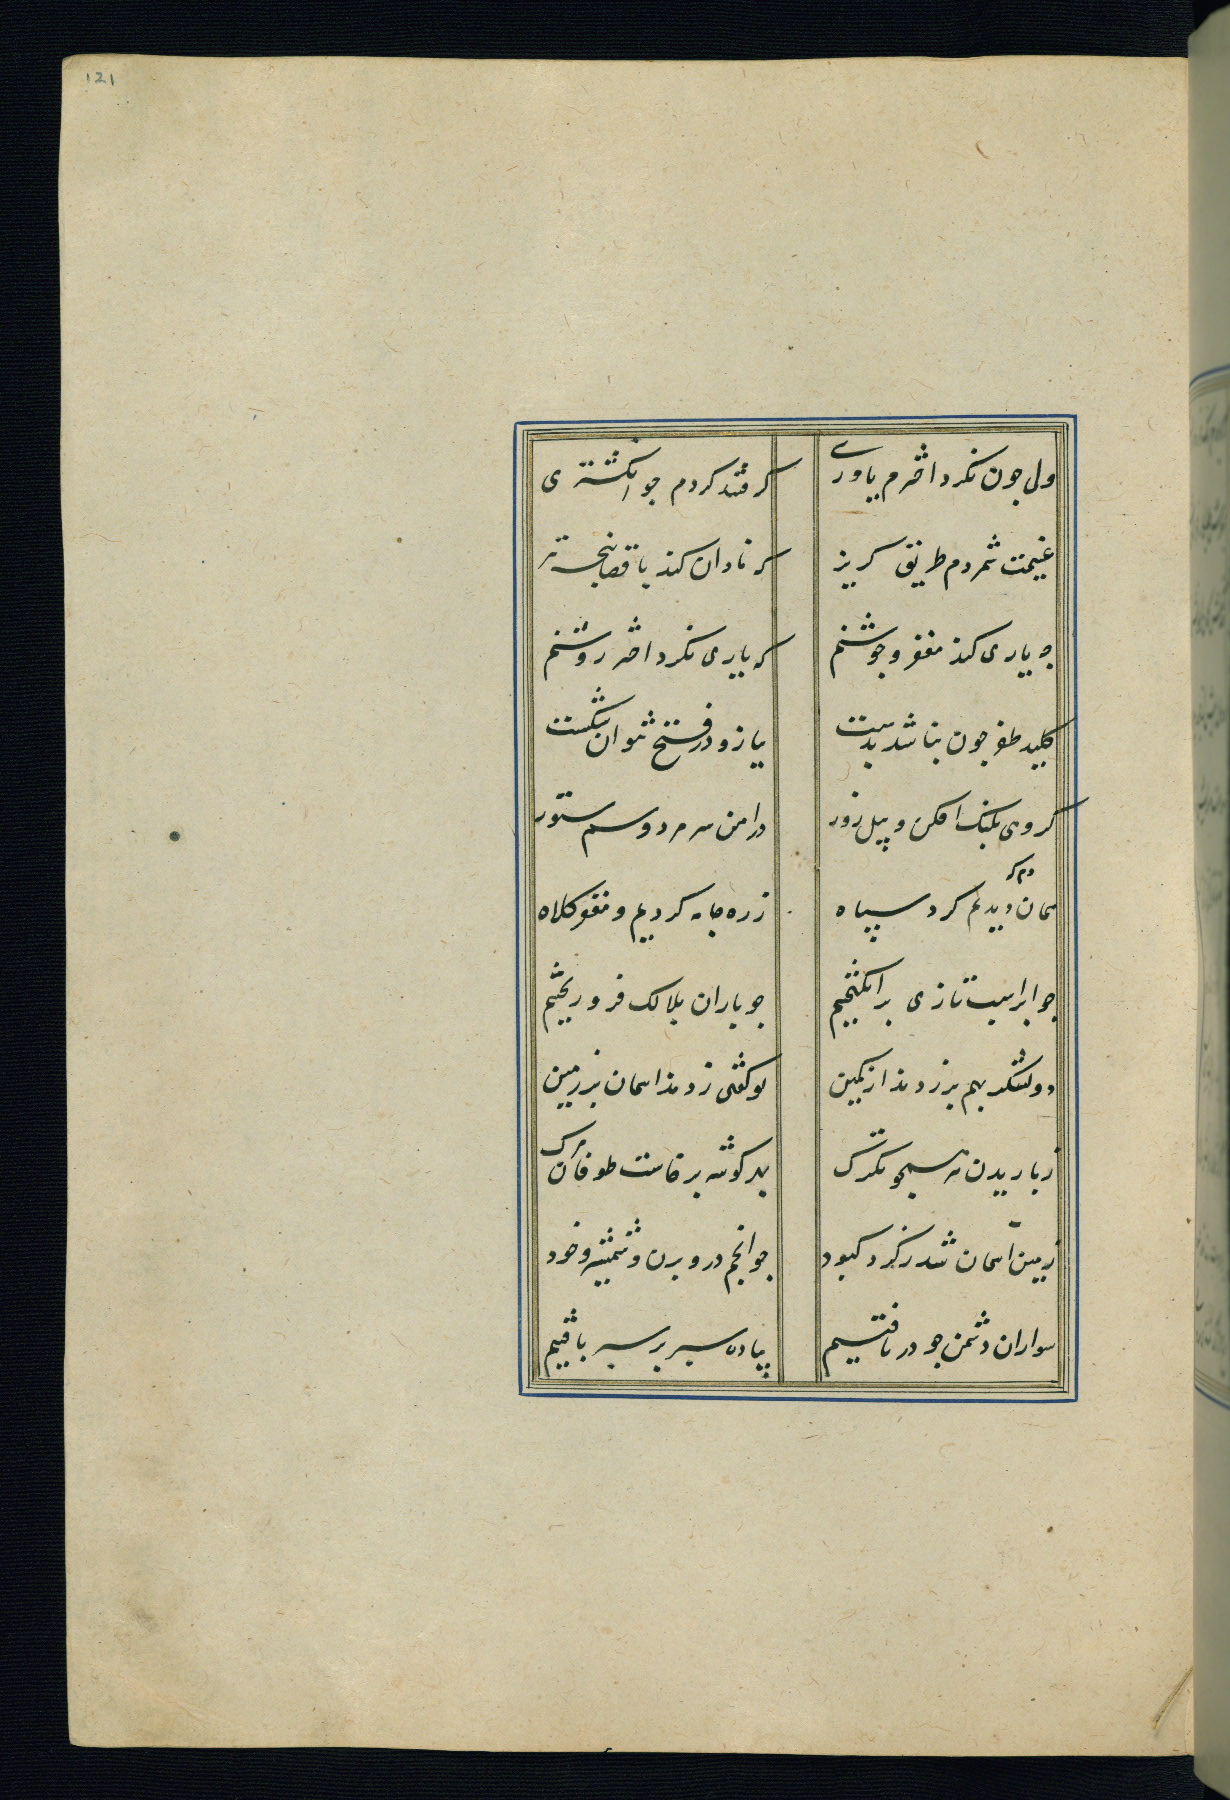 121
ولی چون نکرد اخترم یاوری گرفتند گردم چو انکشتری
غنیمت شمردم طریق کریز که نادان کند با قضا پنجه تیز
چه یاری کند مغفر و جوشنم که یاری نکرد اختر روشنم
کلید ظفر چون نباشد بدست ببازو در فتح نتوان شکست
کروهی پلنک افکن و پیل زور در آهن سر مرد و سم ستور
همان دم که دیدیم کرد سپاه زره جامه کردیم و مغفر کلاه
چو ابر اسب تازی برانکیختیم چو باران بلالک فرو ریختیم
دو لشکر بهم بر زدند از کمین تو کفتی زدند آسمان بر زمین
ز باریدن تیر همچو تکرک بهر کوشه برخاست طوفان مرک
زمین آسمان شد ز کرد کبود چو انجم درو برق شمشیر و خود
سواران دشمن چو دریافتیم پیاده سپر در سپر بافتیم